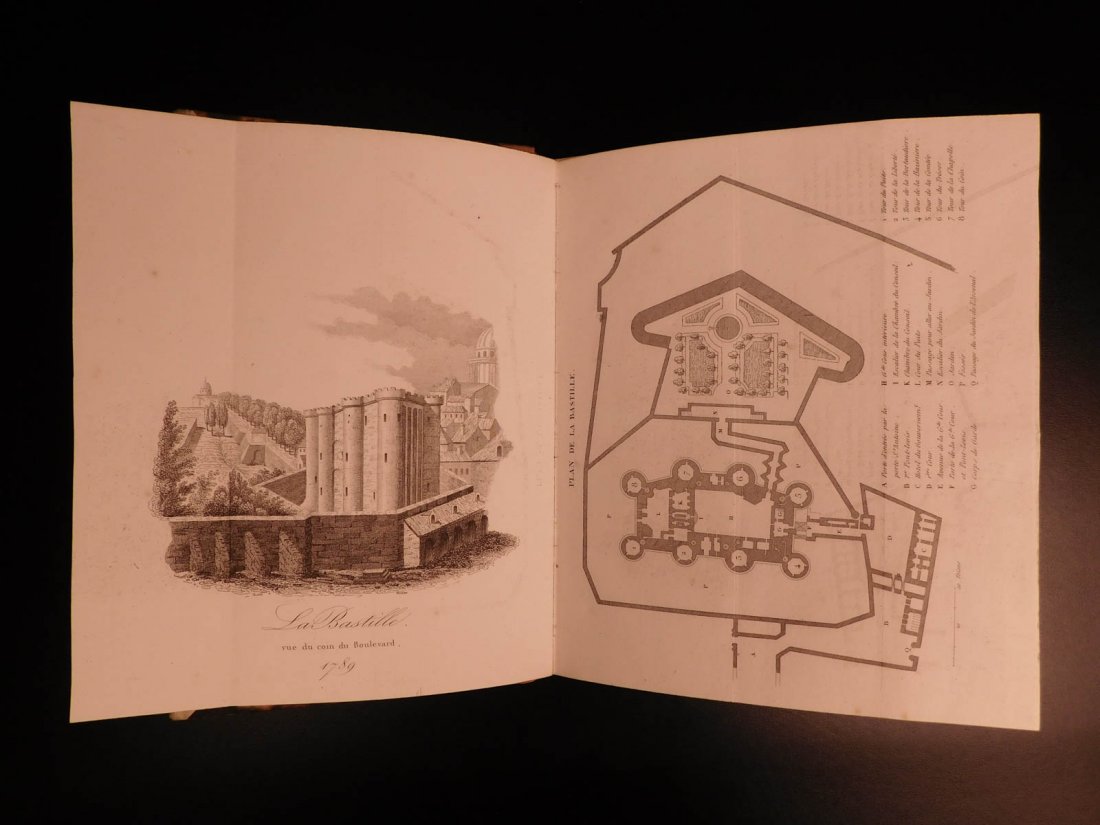 La Bastille.
vue du coin du Boulevard.
1789
PLAN DE LA BASTILLE.
A Porte d'entrée par la
porte St Antoine
B 1er Pont-levis
C Hôtel du Gouvernement
D 1ère Cour
E Avenue de la Gde Cour
F Porte de la Gde Cour
et Pont-levis
G Corps de Gde de
H Gde Cour intérieure
I Escalier de la Chambre du Conseil
K Chambre du Conseil
L Cour du Puits
M Passage pour aller au Jardin
N Escalier du Jardin
O Jardin
P Fossés
Q Passage du Jardin de l'Arsenal
1 Tour du Puits
2 Tour de la Liberté
3 Tour de la Bertaudière
4 Tour de la Basinière
5 Tour de la Comtée
6 Tour du Trésor
7 Tour de la Chapelle
8 Tour du Coin